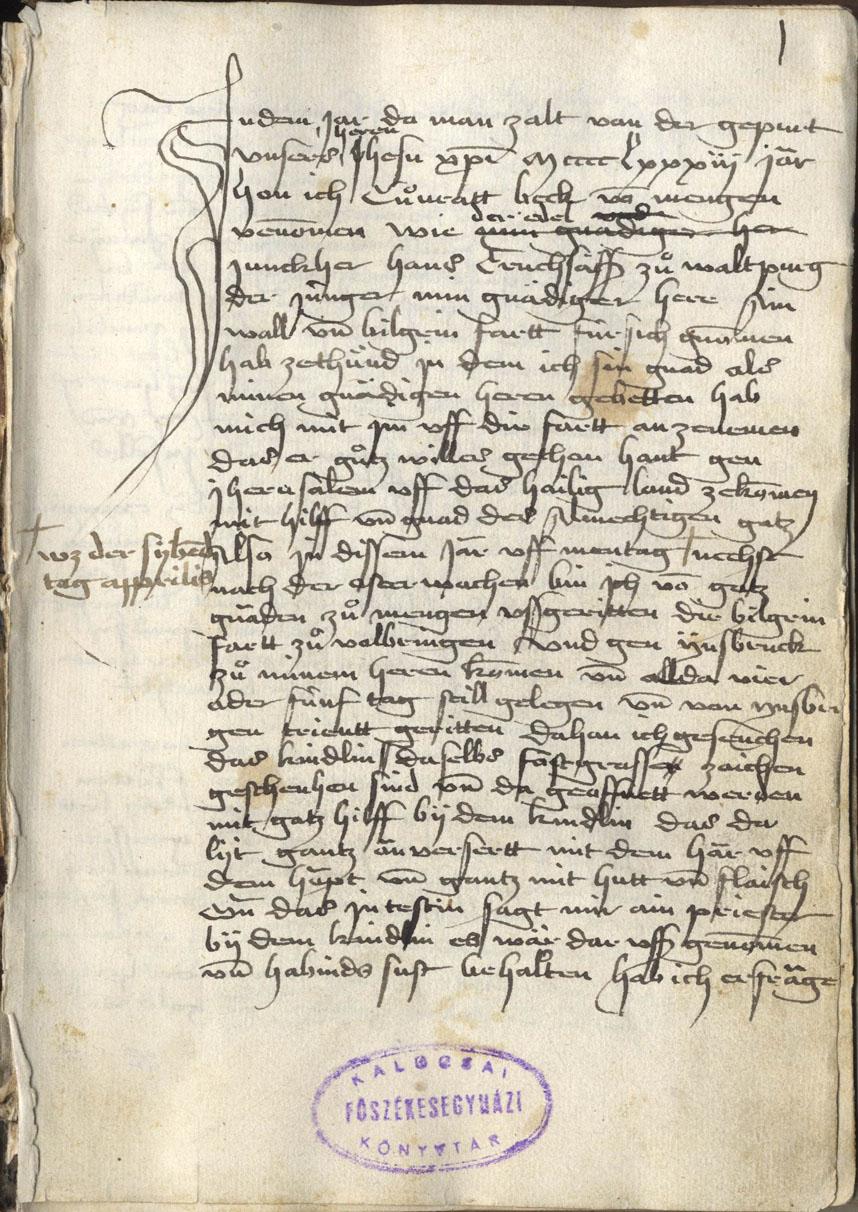 1
In dem jar da man zalt von der gepurt
heren
unsers Jhesu xpi Mcccclxxxiij jär
hon ich Cůnratt beck vō mengen
der edel
vernomen wie min gnädiger her
junckher hans Truchsäss zů waltpurg
der jünger min gnädiger herr Ain
wall vn̄ bilgrin fartt für sich gnomen
hab zethünd jn dem ich sin gnad als
minen gnädigen heren gebetten hab
mich mit jm uff die fartt an zenemen
das er gůtz willes gethon hant gen
jherusalem uff das hailig land zekomen
mit hilff vn̄ gnad des Almechtigen gotz
+ wz der sybend
tag apprilis
Also jn dissem jär uff mentag + nechst
nach der osterwochen bin ich vō gotz
gnäden zů mengen ussgeritten die bilgrin
fartt zů volbringen vnd gen ynsbruck
zů minem heren komen vn̄ allda vier
oder fünf tag still gelegen vn̄ von ynsbru
gen trientt geritten da han ich gesenchen
das kindlin daselbs fast grosse zaichen
geschenhen sind vn̄ da geoffnett werden
mit gotz hilff bij dem kindlin das da
lijt gantz ānversertt mit dem här uff
dem häpt vn̄ gantz mit hutt vn̄ flaisch
vn̄ das jntestin sagt mir ain priester
bij dem kindlin es wär dar uss genomen
vn̄ habinds sust behalten hab ich erfrāge
KALOCSAI
FŐSZÉKESEGYHÁZI
KÖNYVTÁR